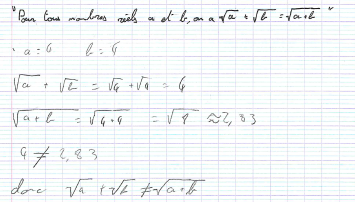 "Pour tous nombres réels a et b, on a √a + √b = √a+b "
· a = 4 b = 4
√a + √b = √4 + √4 = 4
√a+b = √4+4 = √8 ≈ 2,83
4 ≠ 2,83
donc √a + √b ≠ √a+b